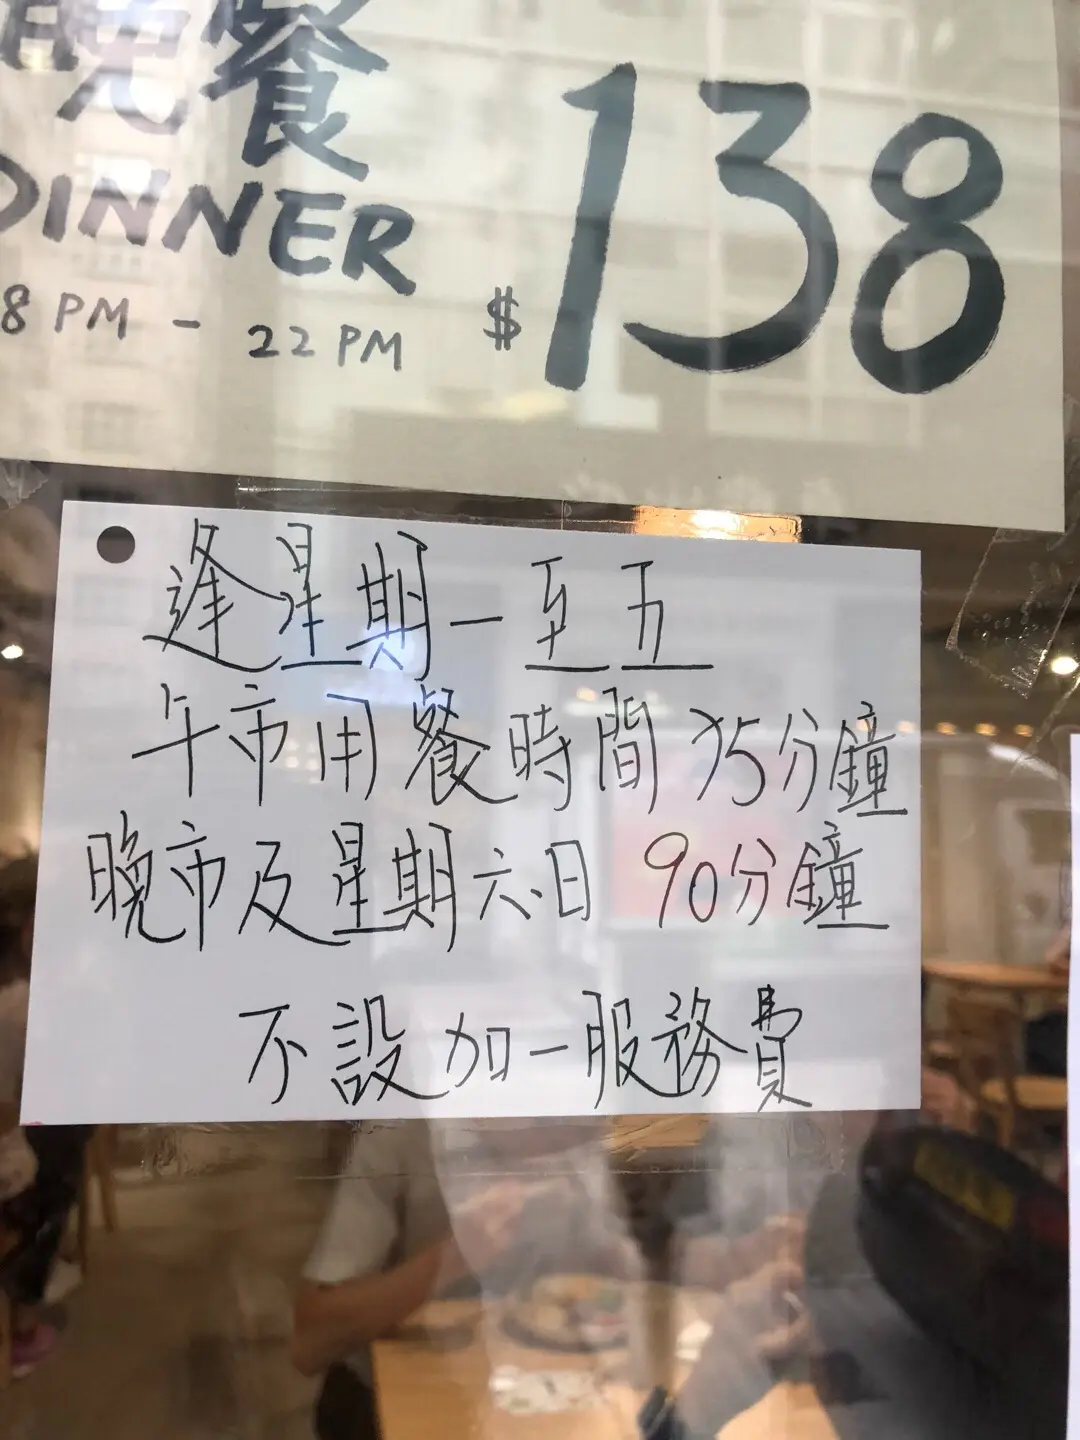 晚餐
DINNER
8 PM - 22 PM
$138
逢星期一至五
午市用餐時間 75分鐘
晚市及星期六、日 90分鐘
不設加一服務費